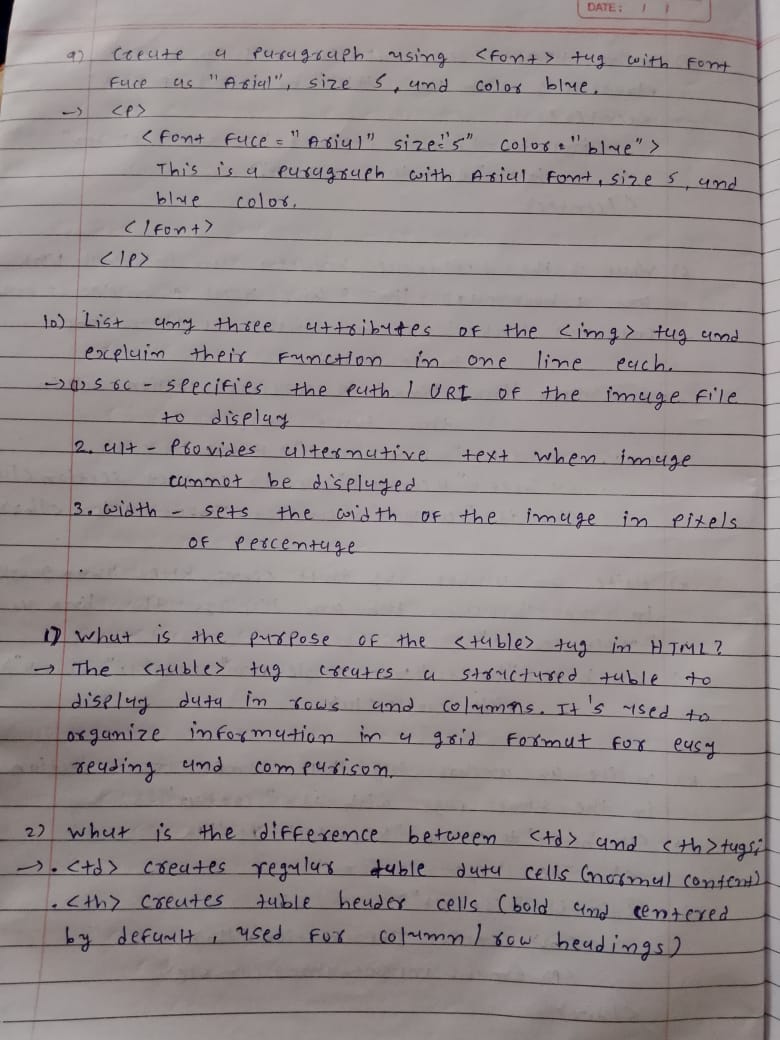 DATE: / /
9) Create a paragraph using <font> tag with Font
Face as "Arial", size 5, and color blue.
→ <p>
<font face = "Arial" size="5" color="blue">
This is a paragraph with Arial font, size 5, and
blue color.
</font>
</p>
10) List any three attributes of the <img> tag and
explain their function in one line each.
→ 1) src - specifies the path / URI of the image file
to display
2. alt - Provides alternative text when image
cannot be displayed
3. width - sets the width of the image in pixels
or percentage
1) What is the purpose of the <table> tag in HTML?
→ The <table> tag creates a structured table to
display data in rows and columns. It's used to
organize information in a grid format for easy
reading and comparison.
2) What is the difference between <td> and <th> tags?
→ . <td> creates regular table data cells (normal content)
. <th> creates table header cells (bold and centered
by default, used for column / row headings)